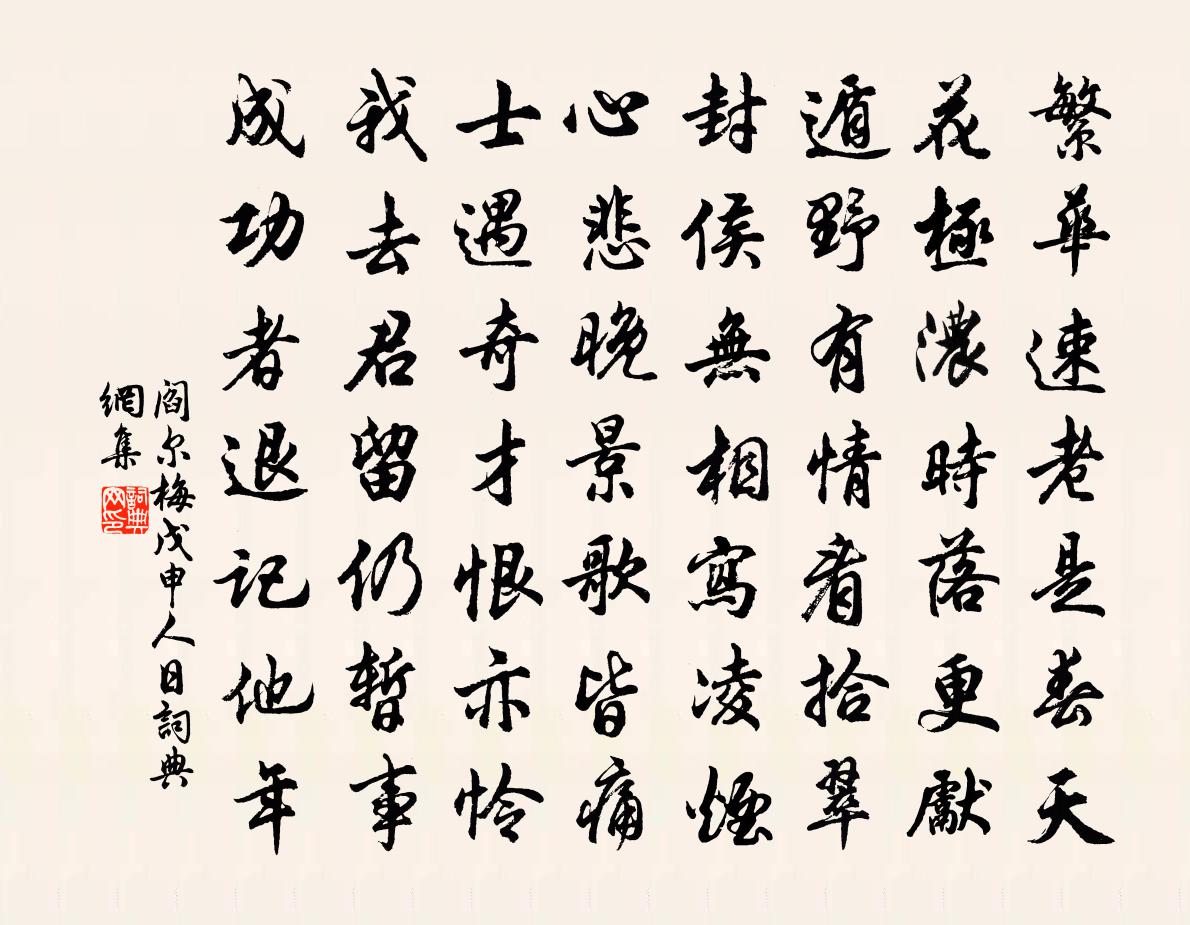 繁華速老是春天
花極濃時落更獻
遁野有情看拾翠
封侯無相寫凌煙
心悲晚景歌皆痛
士遇奇才恨亦憐
我去君留仍暫事
成功者退記他年
閻尔梅戊申人日詞典
網集
詞典網印